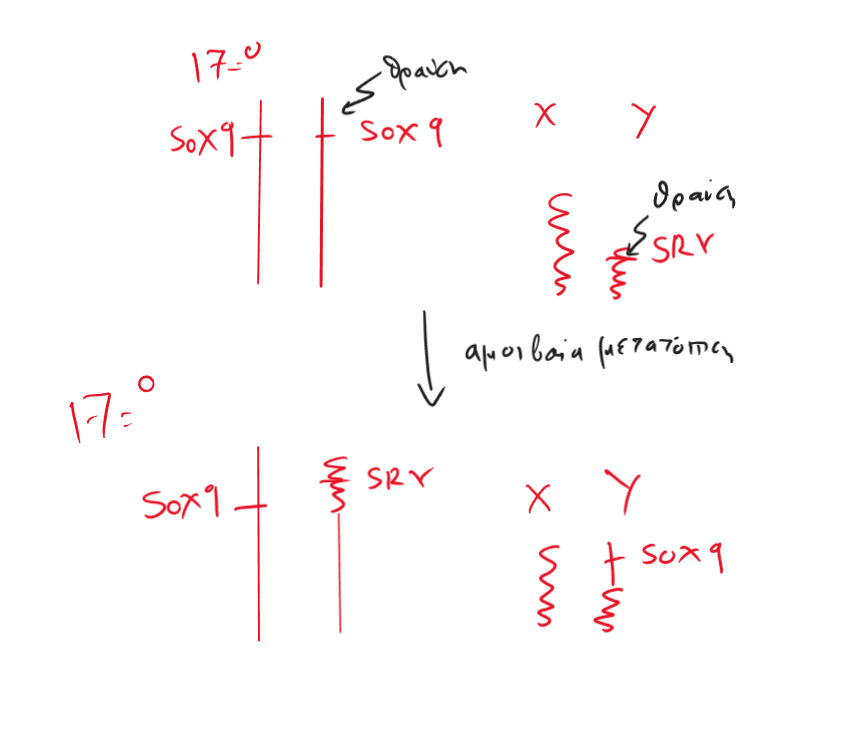 17=ο
θραύση
SOX9
SOX9
X
Y
θραύση
SRY
αμοιβαία μετατόπιση
17=ο
SOX9
SRY
X
Y
SOX9